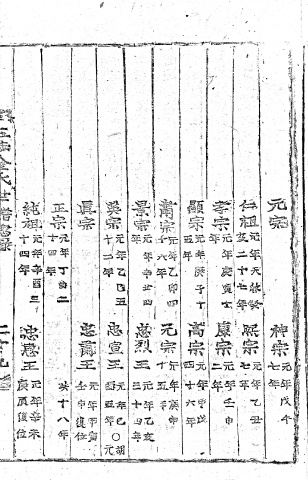 元宗
神宗 元年戊午 七年
仁祖 元年天啓癸亥 二十七年
熙宗 元年乙丑 七年
孝宗 元年庚寅
康宗 元年壬申 二年
顯宗 元年庚子十五年
高宗 元年甲戌 四十六年
肅宗 元年乙卯四十六年
元宗 元年庚申 十五年
景宗 元年辛丑四年
忠烈王 元年乙亥 三十四年
英宗 元年乙巳五十二年
忠宣王
眞宗
忠肅王 元年甲寅 壬申復位
正宗 元年丁酉二十四年
共十八年
純祖 元年辛酉三十四年
忠惠王 元年辛未 庚辰復位
金氏世譜
二十九